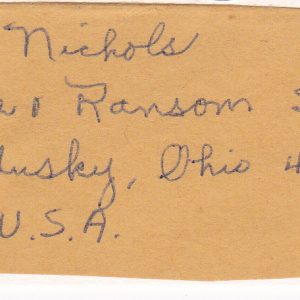 Nichols
Ransom
dusky, Ohio 4
U.S.A.